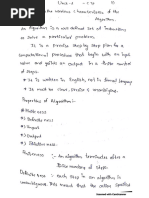 Unit-1
Algorithm.
An algorithm is a well defined set of Instructions
to solve a particular problem.
It is a precise step by step plan for a
computational procedure that begin with an input
value and yields an output in a finite number
of steps.
It is written in English, not in formal language
It must be clear, precise &
Properties of Algorithm:-
Finiteness
Definiteness
Input
Output
Effectiveness
Finiteness :- An algorithm terminates after a
finite number of steps.
Definiteness :- each step in an algorithm is
unambiguous. This means that the action specified
Scanned with CamScanner